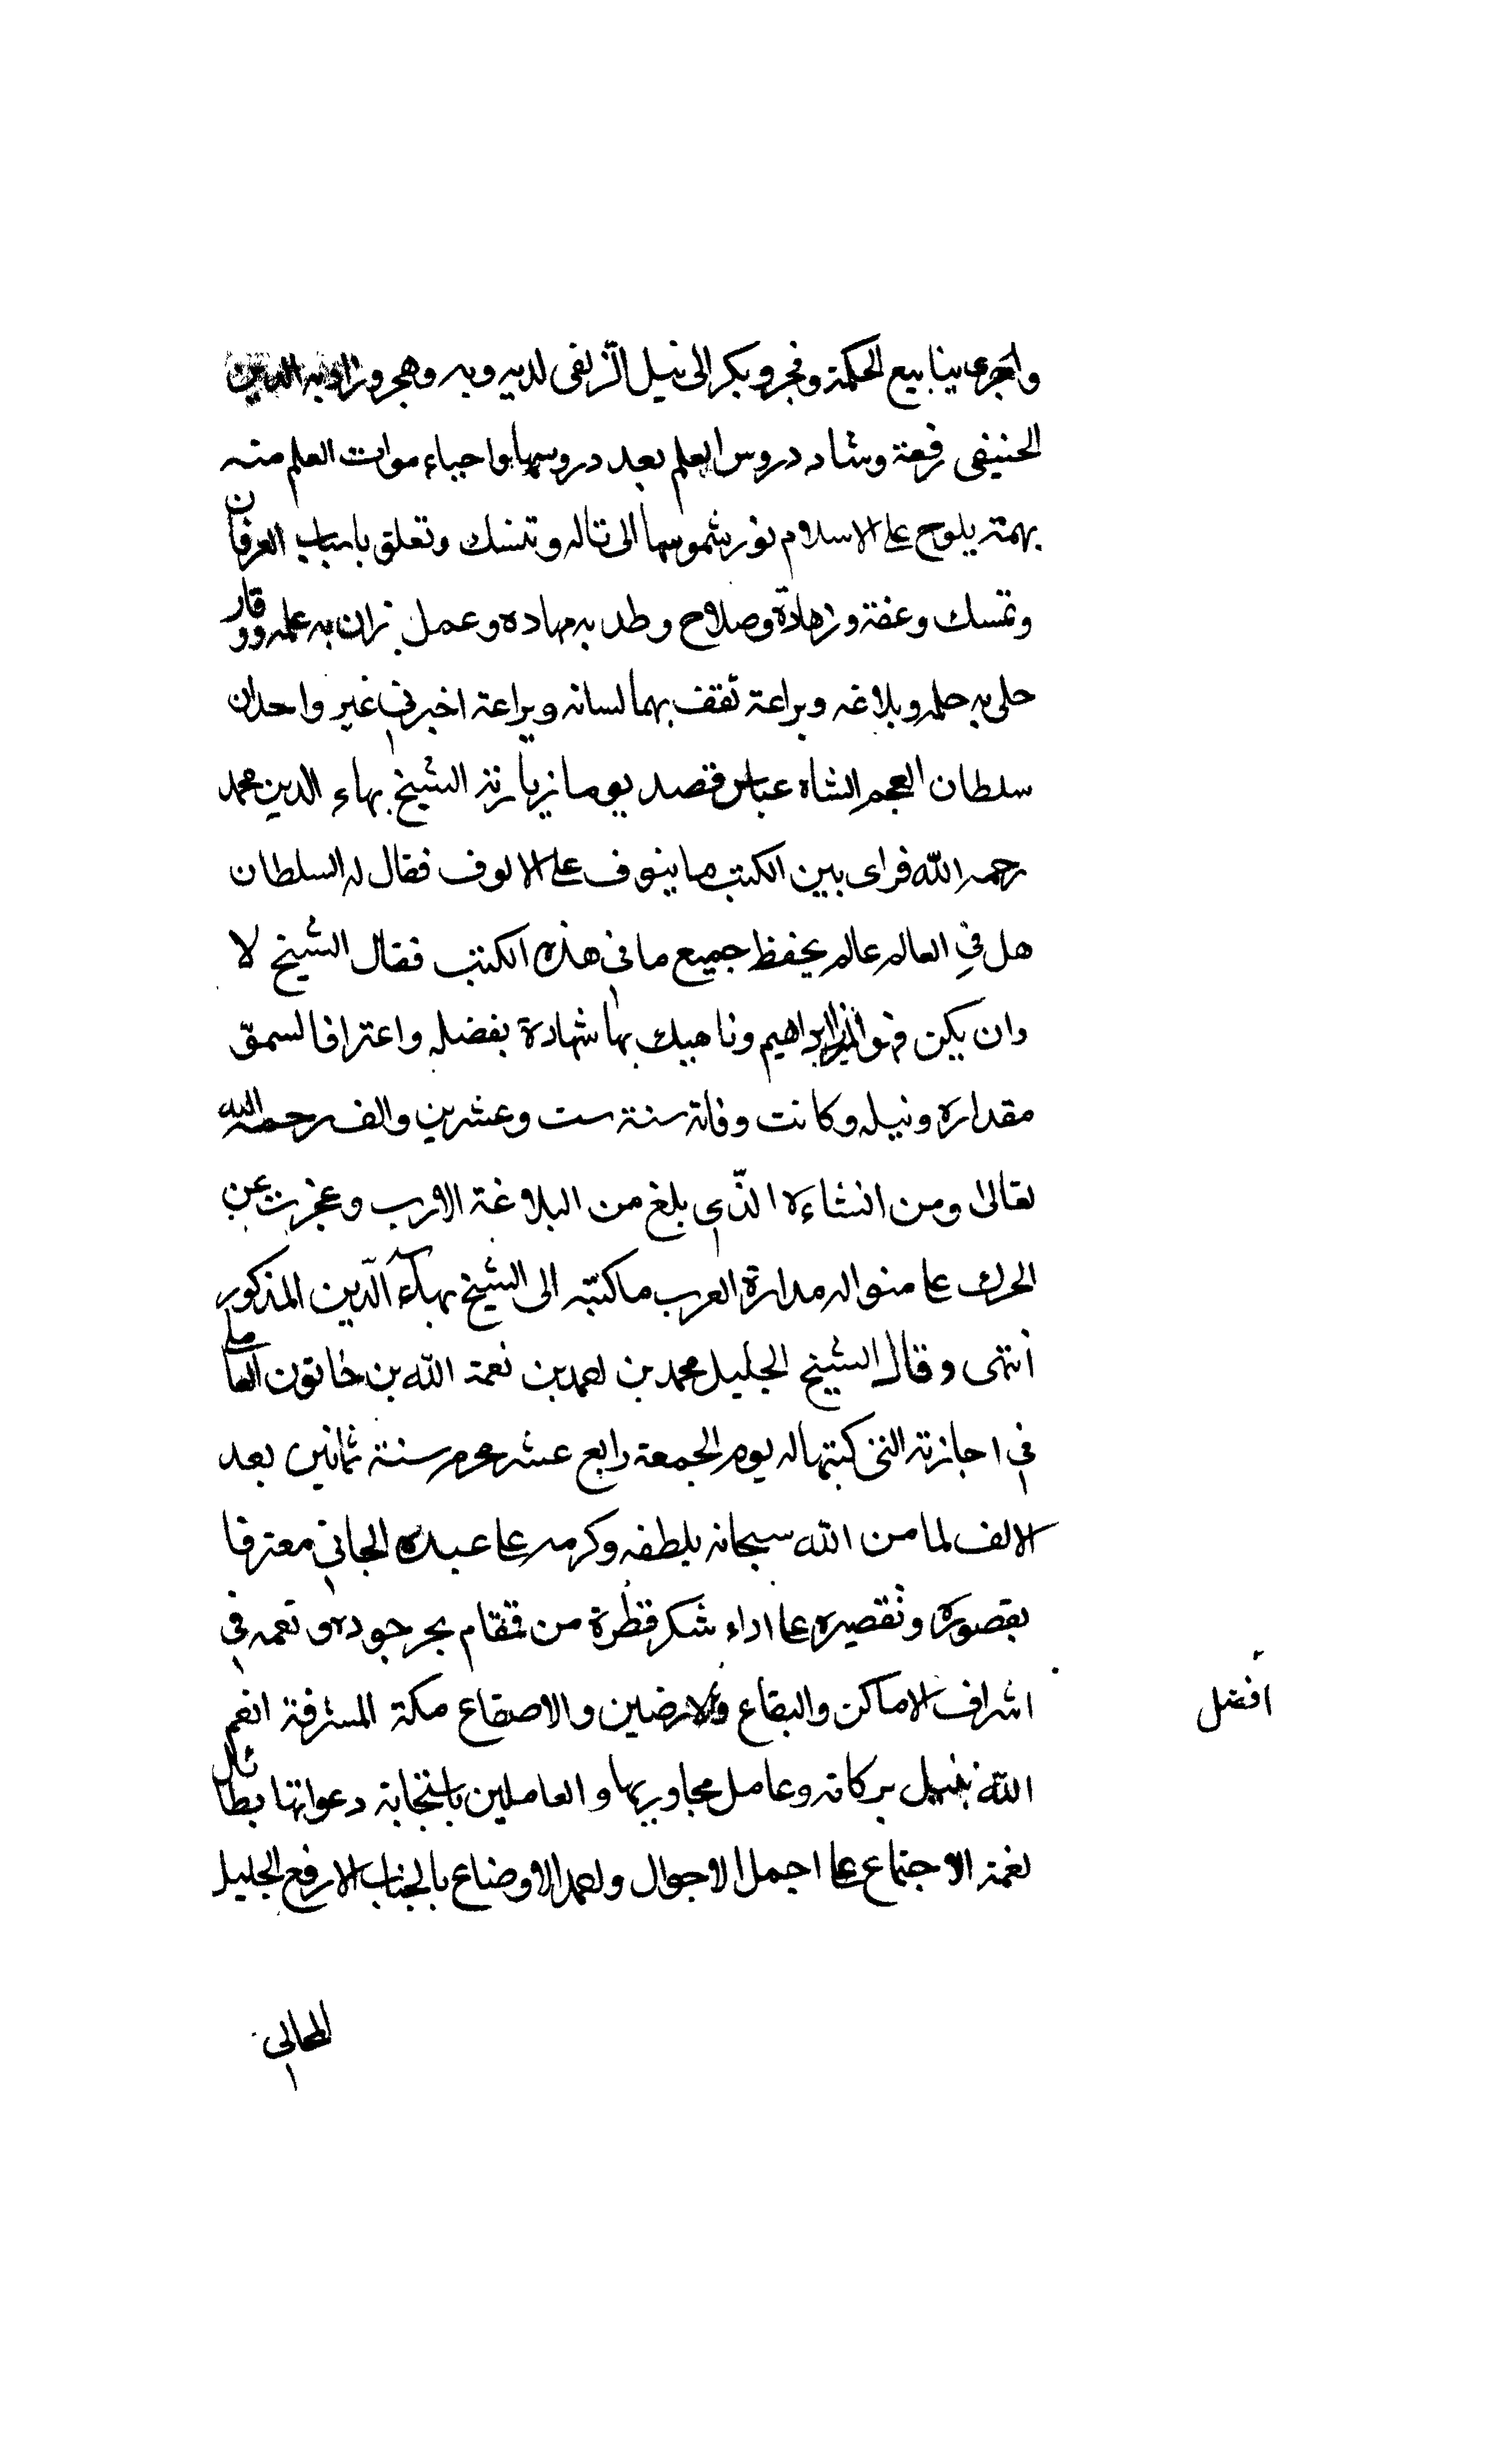 واجرى ينابيع الحكمة وفجر وبكر الى نيل الزلفى لديه وبه وهجر وزاد به الدين
الحنيفى رفعة وشاد دروس العلم بعد دروسها واحياء موات العلم منه
بهمة يلوح على الاسلام نور شموسها الى تاله وتنسك وتعلق باسباب العرفان
وتمسك وعفة وزهادة وصلاح وطد به مهاده وعمل زان به علمه ووقار
حلى به حلمه وبلاغه وبراعة ثقف بهما لسانه ويراعة اخبرنى غير واحد ان
سلطان العجم الشاه عباس قصد يوما زيارة الشيخ بهاء الدين محمد
رحمه الله فراى بين الكتب ما ينوف على الالوف فقال له السلطان
هل في العالم عالم يحفظ جميع ما في هذه الكتب فقال الشيخ لا
وان يكن فهو الميرزا ابراهيم وناهيك بها شهادة بفضله واعترافا لسمو
مقداره ونبله وكانت وفاته سنة ست وعشرين والف رحمه الله
تعالى ومن انشاءه الذى بلغ من البلاغة الارب وعجزت عن
الحرك على منواله مدارة العرب ما كتبه الى الشيخ بهاء الدين المذكور
انتهى وقال الشيخ الجليل محمد بن احمد بن نعمة الله بن خاتون العاملي
في اجازته التى كتبها له يوم الجمعة رابع عشر محرم سنة ثمانين بعد
الالف لما من الله سبحانه بلطفه وكرمه على عبده الجاني معترفا
بقصوره وتقصيره على اداء شكر قطرة من قمقام بحر جوده ونعمه في
اشراف الاماكن والبقاع والارضين والاصقاع مكة المشرفة انعم
افضل
الله بنيل بركاته وعامل مجاوريها والعاملين باستجابة دعواتها بطائل
نعمة الاجتماع على اجمل الاحوال واحمد الاوضاع بالجناب الارفع الجليل
المعالى